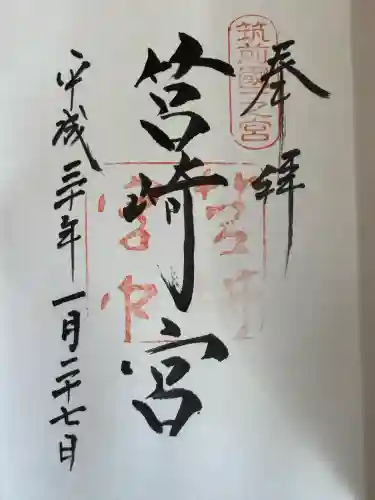 奉拝
筑前國一之宮
筥崎宮
平成三十年一月二十七日